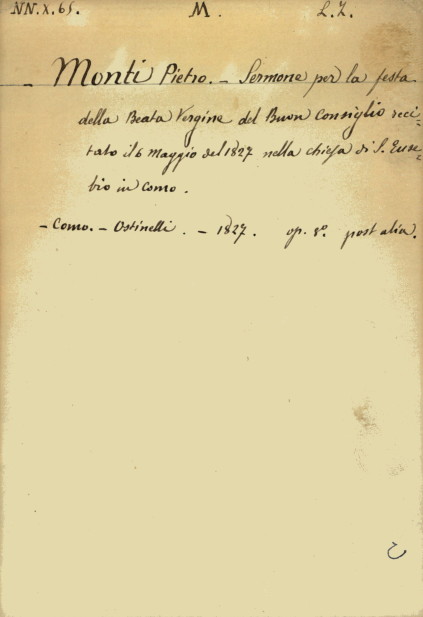 NN.X.65. M. L.Z.
- Monti Pietro. - Sermone per la festa
della Beata Vergine del Buon Consiglio reci-
tato il 6 Maggio del 1827 nella chiesa di S. Euse-
bio in Como.
- Como. - Ostinelli. - 1827. op. 8º. post alia.